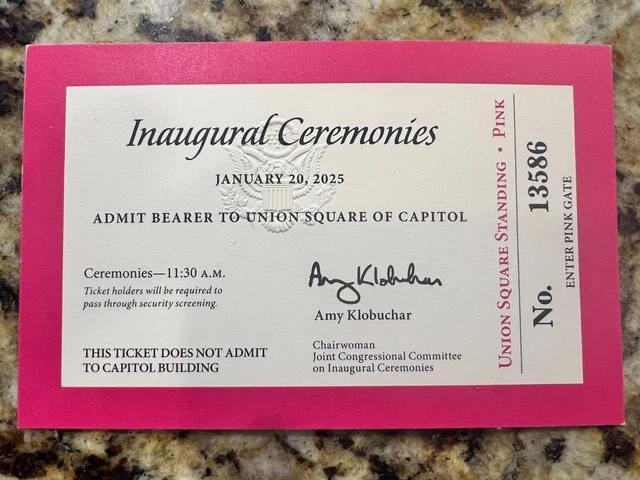 Inaugural Ceremonies
JANUARY 20, 2025
ADMIT BEARER TO UNION SQUARE OF CAPITOL
Ceremonies—11:30 A.M.
Ticket holders will be required to
pass through security screening.
THIS TICKET DOES NOT ADMIT
TO CAPITOL BUILDING
Amy Klobuchar
Amy Klobuchar
Chairwoman
Joint Congressional Committee
on Inaugural Ceremonies
UNION SQUARE STANDING • PINK
No. 13586
ENTER PINK GATE